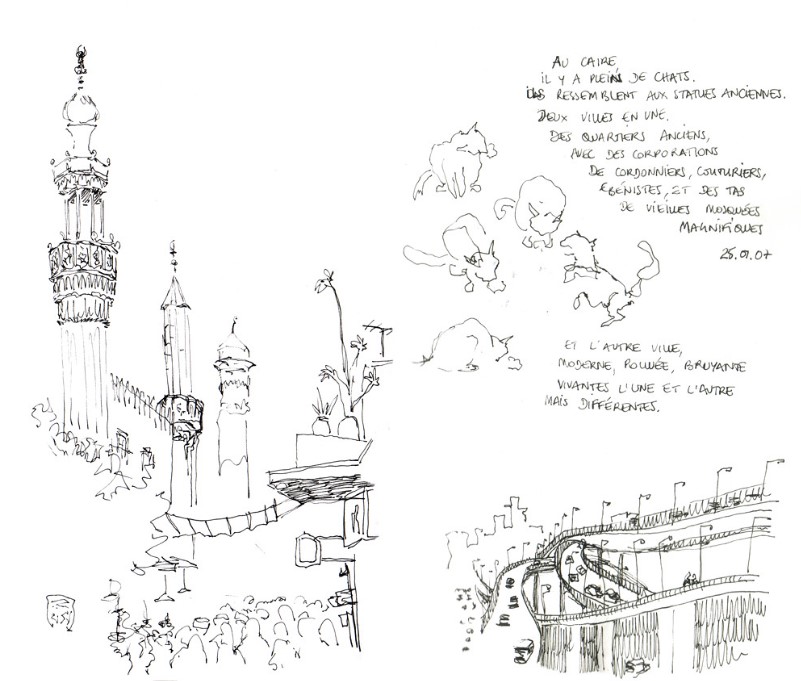 AU CAIRE
IL Y A PLEINS DE CHATS.
ILS RESSEMBLENT AUX STATUES ANCIENNES.
DEUX VILLES EN UNE.
DES QUARTIERS ANCIENS,
AVEC DES CORPORATIONS
DE CORDONNIERS, COUTURIERS,
EBÉNISTES, ET DES TAS
DE VIEILLES MOSQUÉES
MAGNIFIQUES
25.01.07
ET L'AUTRE VILLE,
MODERNE, POLLUÉE, BRUYANTE
VIVANTES L'UNE ET L'AUTRE
MAIS DIFFÉRENTES.